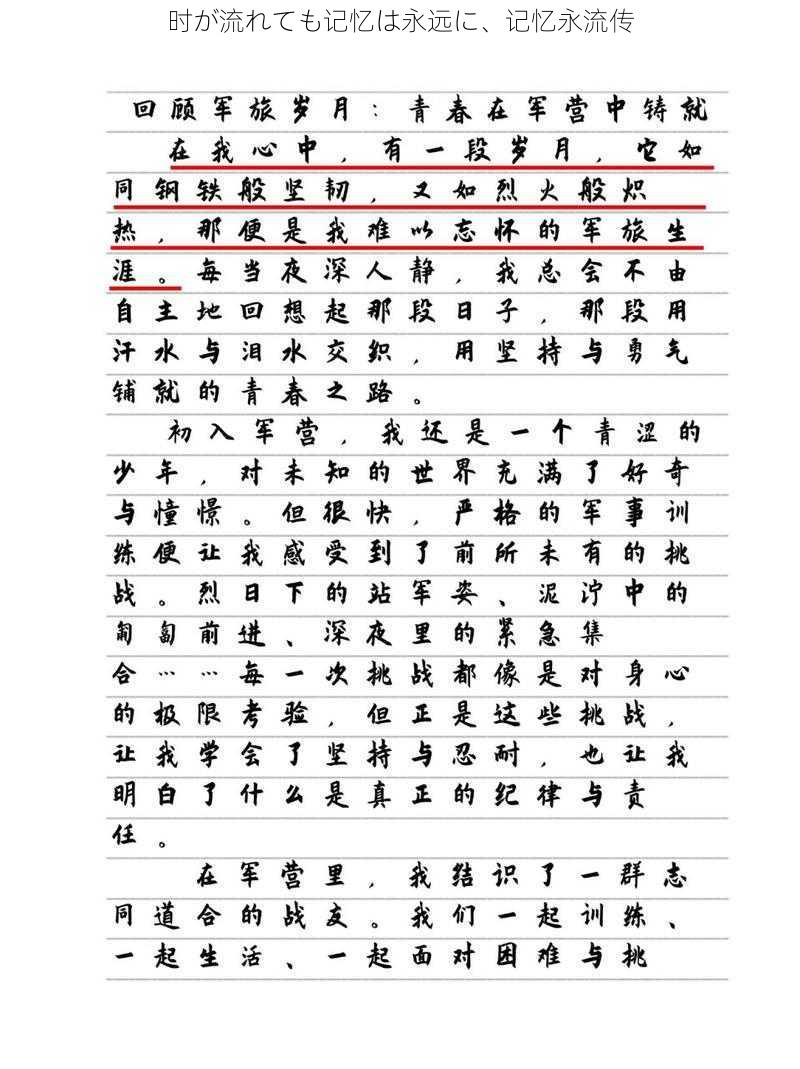 时が流れても记忆は永远に、记忆永流传
回顾军旅岁月：青春在军营中铸就
在我心中，有一段岁月，它如
同钢铁般坚韧，又如烈火般炽
热，那便是我难以忘怀的军旅生
涯。每当夜深人静，我总会不由
自主地回想起那段日子，那段用
汗水与泪水交织，用坚持与勇气
铺就的青春之路。
初入军营，我还是一个青涩的
少年，对未知的世界充满了好奇
与憧憬。但很快，严格的军事训
练便让我感受到了前所未有的挑
战。烈日下的站军姿、泥泞中的
匍匐前进、深夜里的紧急集
合……每一次挑战都像是对身心
的极限考验，但正是这些挑战，
让我学会了坚持与忍耐，也让我
明白了什么是真正的纪律与责
任。
在军营里，我结识了一群志
同道合的战友。我们一起训练、
一起生活、一起面对困难与挑